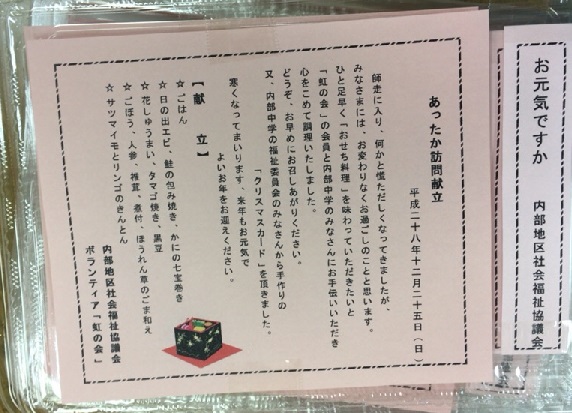 お元気ですか
内部地区社会福祉協議会
あったか訪問献立
平成二十八年十二月二十五日(日)
師走に入り、何かと慌ただしくなってきましたが、
みなさまには、お変わりなくお過ごしのことと思います。
ひと足早く「おせち料理」を味わっていただきたいと
「虹の会」の会員と内部中学のみなさんにお手伝いいただき
心をこめて調理いたしました。
どうぞ、お早めにお召しあがりください。
又、内部中学の福祉委員会のみなさんから手作りの
「クリスマスカード」を頂きました。
寒くなってまいります、来年もお元気で
よいお年をお迎えください。
【献立】
☆ごはん
☆日の出エビ、鮭の包み焼き、かにの七宝巻き
☆花しゅうまい、タマゴ焼き、黒豆
☆ごぼう、人参、椎茸、煮付、ほうれん草のごま和え
☆サツマイモとリンゴのきんとん
内部地区社会福祉協議会
ボランティア「虹の会」